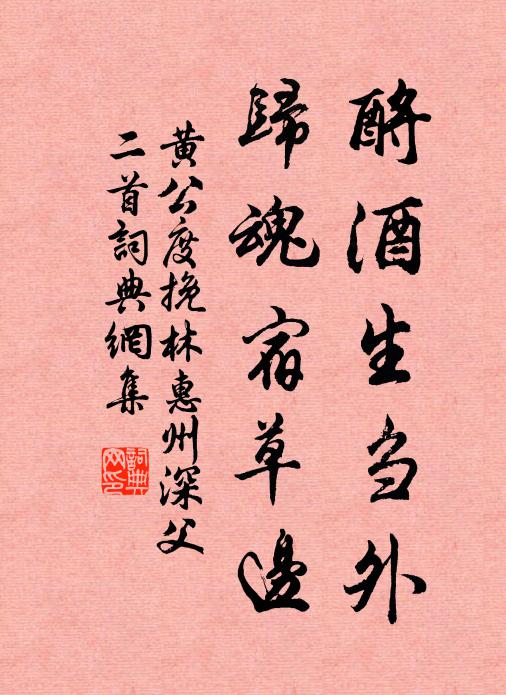 酹酒生刍外
歸魂宿草邊
黃公度挽林惠州深父
二首詞典網集
詞典網印